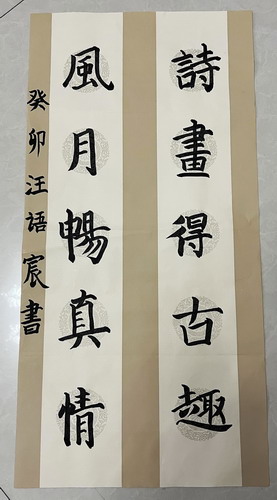 詩畫得古趣
風月暢真情
癸卯汪語宸書